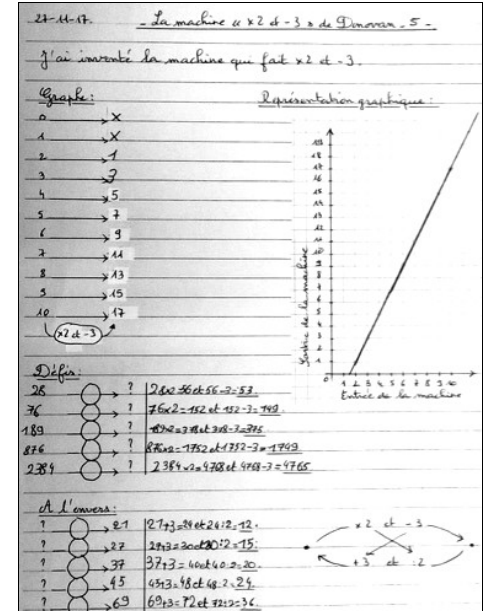 27-11-17. - La machine « x2 et -3 » de Donovan - 5 -
J'ai inventé la machine qui fait x2 et -3.
Graphe :
0 → X
1 → X
2 → 1
3 → 3
4 → 5
5 → 7
6 → 9
7 → 11
8 → 13
9 → 15
10 → 17
x2 et -3
Représentation graphique :
19
18
17
16
15
14
13
12
11
10
9
8
7
6
5
4
3
2
1
0 1 2 3 4 5 6 7 8 9 10
Sortie de la machine
Entrée de la machine
Défis :
28 ? 28x2=56 et 56-3=53.
76 ? 76x2=152 et 152-3=149.
189 ? 189x2=378 et 378-3=375
876 ? 876x2=1752 et 1752-3=1749
2384 ? 2384x2=4768 et 4768-3=4765
A l'envers :
? → 21 21+3=24 et 24:2=12.
? → 27 27+3=30 et 30:2=15.
? → 37 37+3=40 et 40:2=20.
? → 45 45+3=48 et 48:2=24.
? → 69 69+3=72 et 72:2=36.
x2 et -3
+3 et :2